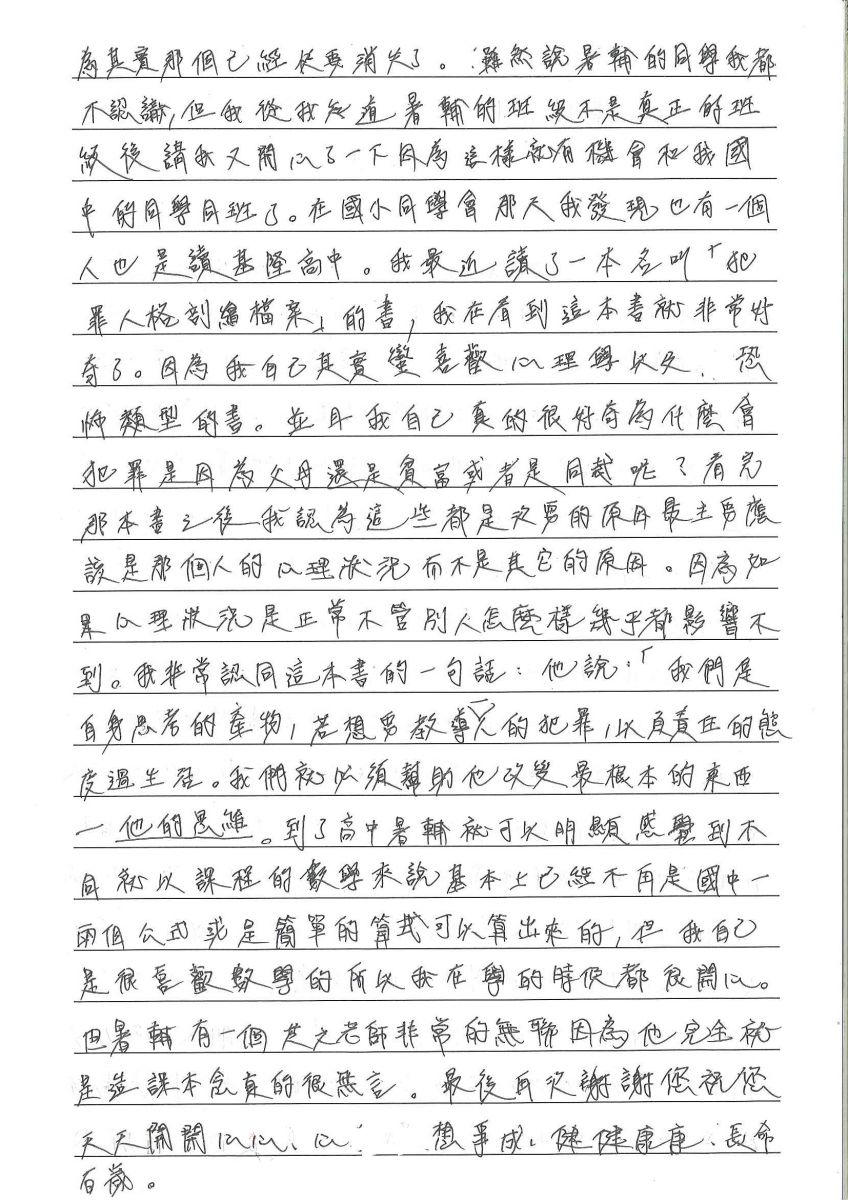 為其實那個已經快要消失了。雖然說暑輔的同學我都
不認識,但我從我知道暑輔的班級不是真正的班
級後讓我又開心了一下因為這樣就有機會和我國
中的同學同班了。在國小同學會那天我發現也有一個
人也是讀基隆高中。我最近讀了一本名叫「犯
罪人格剖繪檔案」的書,我在看到這本書就非常好
奇了。因為我自己其實蠻喜歡心理學以及、恐
怖類型的書。並且我自己真的很好奇為什麼會
犯罪是因為父母還是貧富或者是同儕呢?看完
那本書之後我認為這些都是次要的原因最主要應
該是那個人的心理狀況而不是其它的原因。因為如
果心理狀況是正常不管別人怎麼樣幾乎都影響不
到。我非常認同這本書的一句話:他說:「我們是
自身思考的產物,若想要教導人的犯罪,以負責任的態
度過生活。我們就必須幫助他改變最根本的東西
—他的思維。到了高中暑輔就可以明顯感覺到不
同就以課程的數學來說基本上已經不再是國中一
兩個公式或是簡單的算式可以算出來的,但我自己
是很喜歡數學的所以我在學的時候都很開心。
但暑輔有一個英文老師非常的無聊因為他完全就
是造課本念真的很無言。最後再次謝謝您祝您
天天開開心心、心 想事成、健健康康、長命
百歲。